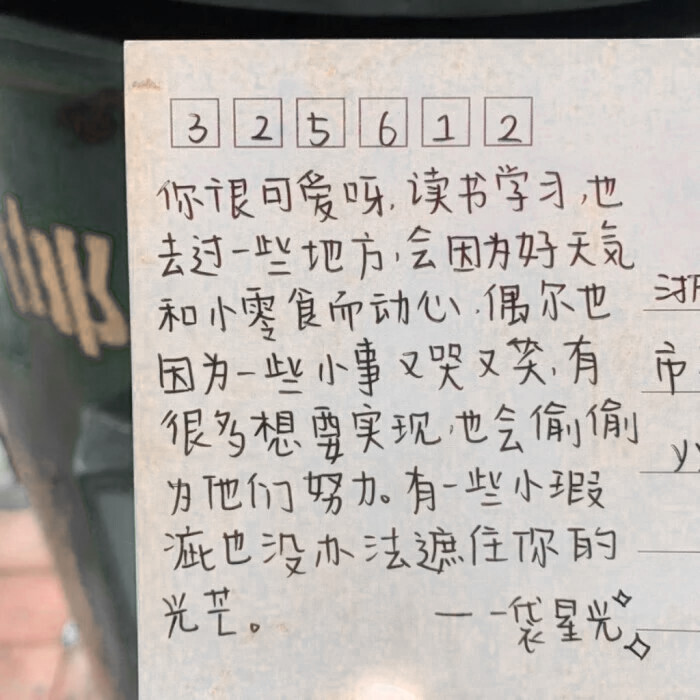 325612
你很可爱呀,读书学习,也
去过一些地方,会因为好天气
和小零食而动心,偶尔也
因为一些小事又哭又笑,有
很多想要实现,也会偷偷
为他们努力。有一些小瑕
疵也没办法遮住你的
光芒。 — 一袋星光
浙
市
yy